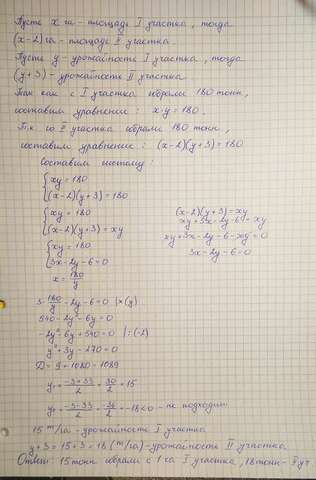 Пусть x га - площадь I участка, тогда
(x-2) га - площадь II участка
Пусть y - урожайность I участка, тогда
(y+3) - урожайность II участка
Так как с I участка собрали 180 тонн,
составим уравнение: x·y=180.
Т.к со II участка собрали 180 тонн,
составим уравнение: (x-2)(y+3)=180
Составим систему:
{xy=180
{(x-2)(y+3)=180
{xy=180
{(x-2)(y+3)=xy
(x-2)(y+3)=xy
xy+3x-2y-6=xy
xy+3x-2y-6-xy=0
3x-2y-6=0
{xy=180
{3x-2y-6=0
x=180/y
3·180/y-2y-6=0 |×(y)
540-2y²-6y=0
-2y²-6y+540=0 |:(-2)
y²+3y-270=0
D=9+1080=1089
y₁=(-3+33)/2=30/2=15
y₂=(-3-33)/2=-36/2=-18<0 - не подходит
15 т/га - урожайность I участка
y+3=15+3=18 (т/га) - урожайность II участка
Ответ: 15 тонн собрали с 1 га I участка, 18 тонн - II уч